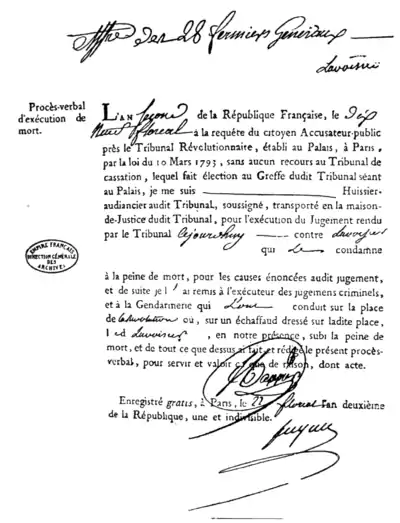 Affre des 28 fermiers Généraux
Lavoisier
Procès-verbal
d'exécution de
mort.
L'AN second de la République Française, le Dix
neuf floreal à la requête du citoyen Accusateur-public
près le Tribunal Révolutionnaire, établi au Palais, à Paris,
par la loi du 10 Mars 1793, sans aucun recours au Tribunal de
cassation, lequel fait élection au Greffe dudit Tribunal séant
au Palais, je me suis Huissier-
audiancier audit Tribunal, soussigné, transporté en la maison-
de-Justice dudit Tribunal, pour l'exécution du Jugement rendu
par le Tribunal cejourdhuy contre Lavoisier
qui le condamne
à la peine de mort, pour les causes énoncées audit jugement,
et de suite je l' ai remis à l'exécuteur des jugemens criminels,
et à la Gendarmerie qui l'ont conduit sur la place
de la Revolution où, sur un échaffaud dressé sur ladite place,
l ed Lavoisier, en notre présence, subi la peine de
mort, et de tout ce que dessus ai fait et rédigé le présent procès-
verbal, pour servir et valoir ce que de raison, dont acte.
Enregistré gratis, à Paris, le 21 floreal l'an deuxième
de la République, une et indivisible.
EMPIRE FRANÇAIS
DIRECTION GÉNÉRALE
DES
ARCHIVES